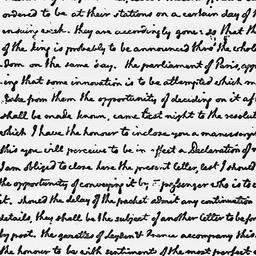 ordered to be at their stations on a certain day of
ensuing week. they are accordingly gone: so that
of the king is probably to be announced thro' the whole
dom on the same day. the parliament of Paris, app
ing that some innovation is to be attempted which m
take from them the opportunity of deciding on it af
shall be made known, came last night to the resolut
which I have the honour to inclose you a manuscrip
this you will perceive to be in effect a Declaration of
I am obliged to close here the present letter, lest I should
the opportunity of conveying it by passenger who is to
it. should the delay of the packet admit any continuation
details, they shall be the subject of another letter to be for
by post. the gazettes of Leyden & France accompany this
the honour to be with sentiments of the most perfect